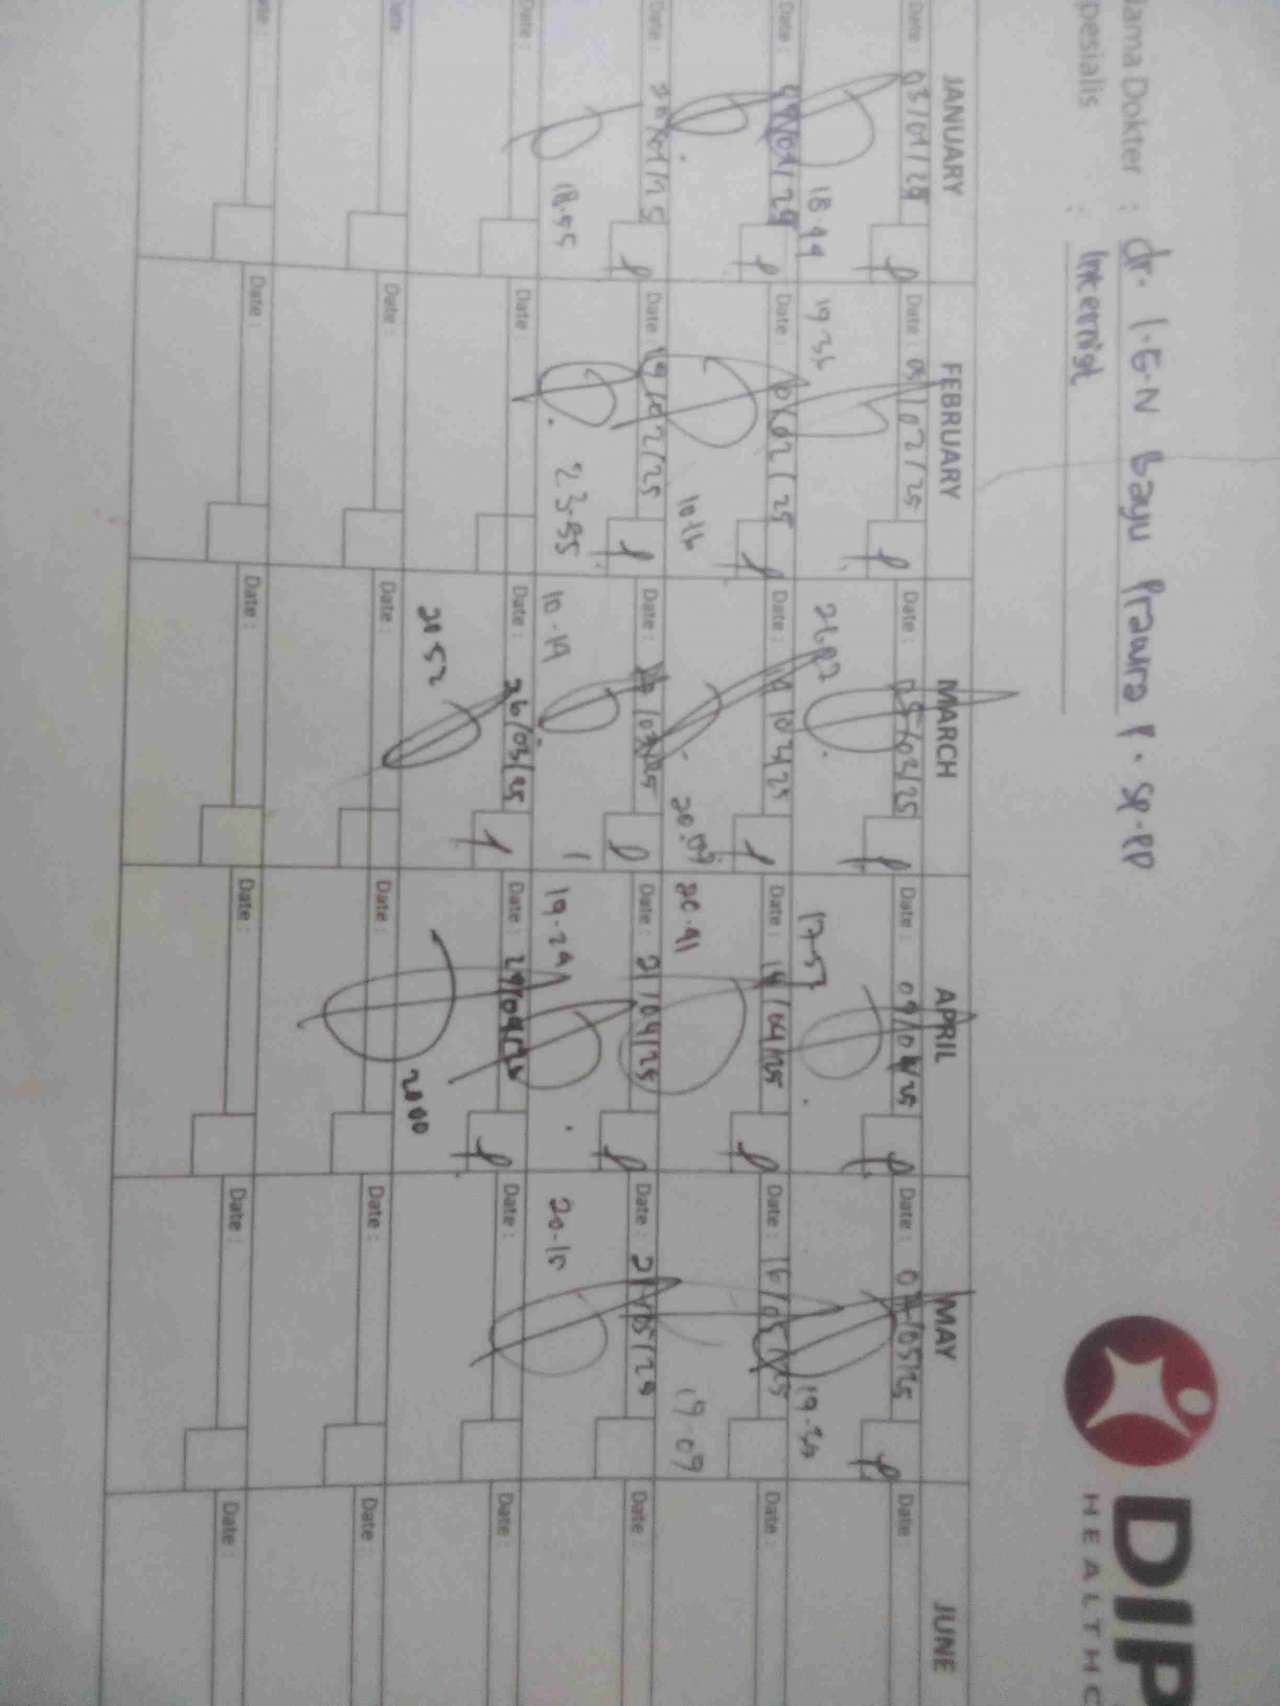 DIP
HEALTHC
ama Dokter : dr. I.G.N Bayu Prawira P. Sp.PD
pesialis : Internist
JANUARY FEBRUARY MARCH APRIL MAY JUNE
Date : 03/01/25 Date : 05/02/25 Date : 05/03/25 Date : 09/04/25 Date : 07/05/25 Date :
18.44 19.36 17.57 19.30
Date : Date : Date : Date : 14/04/25 Date : 15/05/25 Date :
10.16 20.09 20.41 19.09
Date : Date : 19/02/25 Date : Date : 21/04/25 Date : 21/05/25 Date :
18.55 23.55 10.19 19.24 20.15
Date : Date : Date : 26/03/25 Date : 29/04/25 Date : Date :
20.52 2000
Date : Date : Date : Date : Date : Date :
Date : Date : Date : Date : Date : Date :